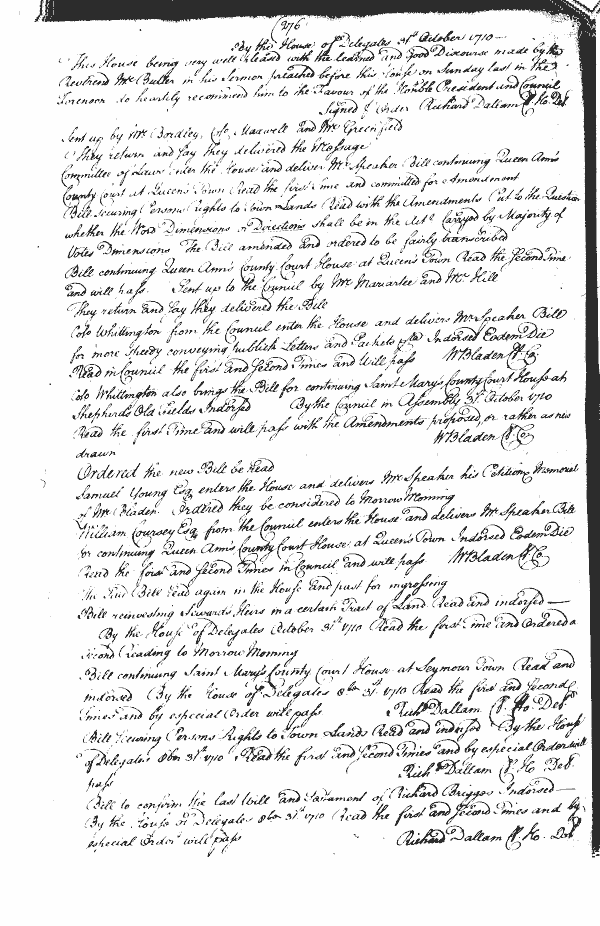 (276)
By the House of Delegates 31st October 1710—
This House being very well pleased with the Learned and good Discourse made by the
Reverend Mr Butler in his Sermon preached before this House on Sunday last in the
forenoon do heartily recommend him to the Favour of the Honble President and Council
Signed p Order Richard Dallam Cl Ho Del
Sent up by Mr Bradley, Co Maxwell and Mr Greenfield
They return and say they delivered the Message
Committee of Laws enter the House and deliver Mr Speaker Bill continuing Queen Ann's
County Court at Queens Town Read the first time and committed for Amendment
Bill securing Persons Rights to Town Lands Read with the Amendments Put to the Question
whether the Word Dimensions or Directions shall be in the Act. Carryed by Majority of
Votes Dimensions The Bill amended and ordered to be fairly transcribed
Bill continuing Queen Ann's County Court House at Queen's Town Read the Second Time
and will pass. Sent up to the Council by Mr and Mr Hill
They return and say they delivered the Bill
Colo Whittington from the Council enter the House and delivers Mr Speaker Bill
for more speedy conveying publick Letters and Packets &ca Indorsed Eodem Die
Read in Council the first and second Times and Will pass W Bladen Cl Co
Colo Whittington also brings the Bill for continuing Saint Mary's County Court House at
Shepherds Old Fields Indorsed By the Council in Assembly 31st October 1710
Read the first Time and will pass with the Amendments proposed, or rather as new
drawn W Bladen Cl Co
Ordered the new Bill be Read
Samuel Young Esq enters the House and delivers Mr Speaker his Petition Memorial
of Mr Bladen. Ordered they be considered to Morrow Morning
William Coursey Esq from the Council enters the House and delivers Mr Speaker Bill
for continuing Queen Ann's County Court House at Queen's Town Indorsed Eodem Die
Read the first and second Times in Council and will pass W Bladen Cl Co
The said Bill read again in the House and past for ingrossing
Bill reinvesting Sewards Heirs in a certain Tract of Land Read and indorsed—
By the House of Delegates October 31st 1710 Read the first Time and Ordered a
second Reading to Morrow Morning
Bill continuing Saint Mary's County Court House at Seymour Town Read and
indorsed By the House of Delegates 8ber 31st 1710 Read the first and Second
Times and by especial Order will pass Richd Dallam Cl Ho Del
Bill securing Persons Rights to Town Lands Read and indorsed By the House
of Delegates 8ber 31st 1710 Read the first and second Times and by especial Order will
pass Richd Dallam Cl Ho Del
Bill to confirm the last Will and Testament of Richard Briggs Indorsed—
By the House of Delegates 8ber 31st 1710 Read the first and second Times and by
especial Order will pass Richard Dallam Cl Ho. Del